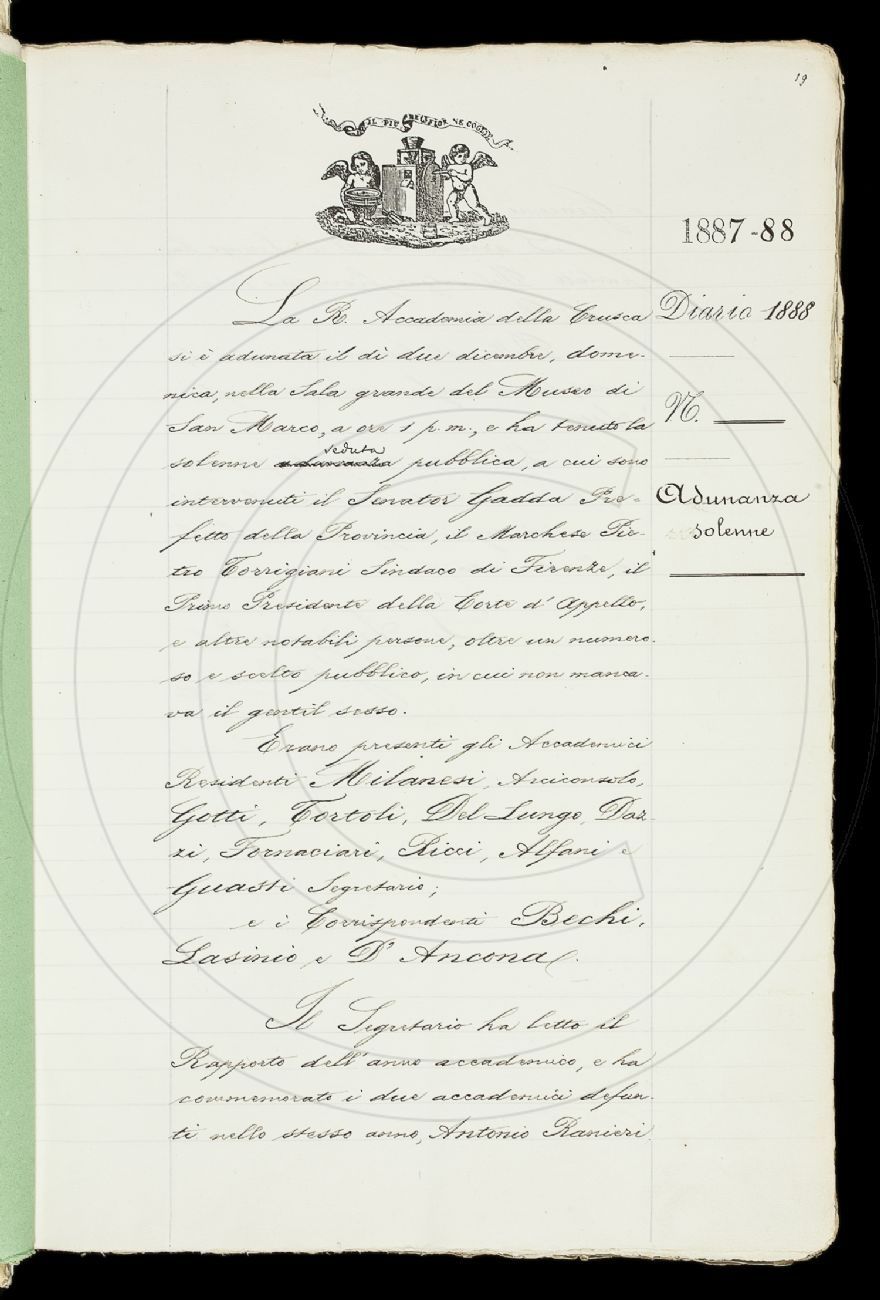 19
IL PIÙ BEL FIOR NE COGLIE
1887-88
Diario 1888
N.
Adunanza
solenne
La R. Accademia della Crusca
si è adunata il dì due dicembre, dome-
nica, nella Sala grande del Museo di
San Marco, a ore 1 p. m., e ha tenuto la
seduta
solenne adunanza pubblica, a cui sono
intervenuti il Senator Gadda Pre-
fetto della Provincia, il Marchese Pie-
tro Torrigiani Sindaco di Firenze, il
Primo Presidente della Corte d'Appello,
e altre notabili persone, oltre un numero-
so e scelto pubblico, in cui non manca-
va il gentil sesso.
Erano presenti gli Accademici
Residenti Milanesi, Arciconsolo,
Gotti, Tortoli, Del Lungo, Daz-
zi, Fornaciari, Ricci, Alfani e
Guasti Segretario;
e i Corrispondenti Bechi,
Lasinio e D'Ancona.
Il Segretario ha letto il
Rapporto dell'anno accademico, e ha
commemorato i due accademici defun-
ti nello stesso anno, Antonio Ranieri